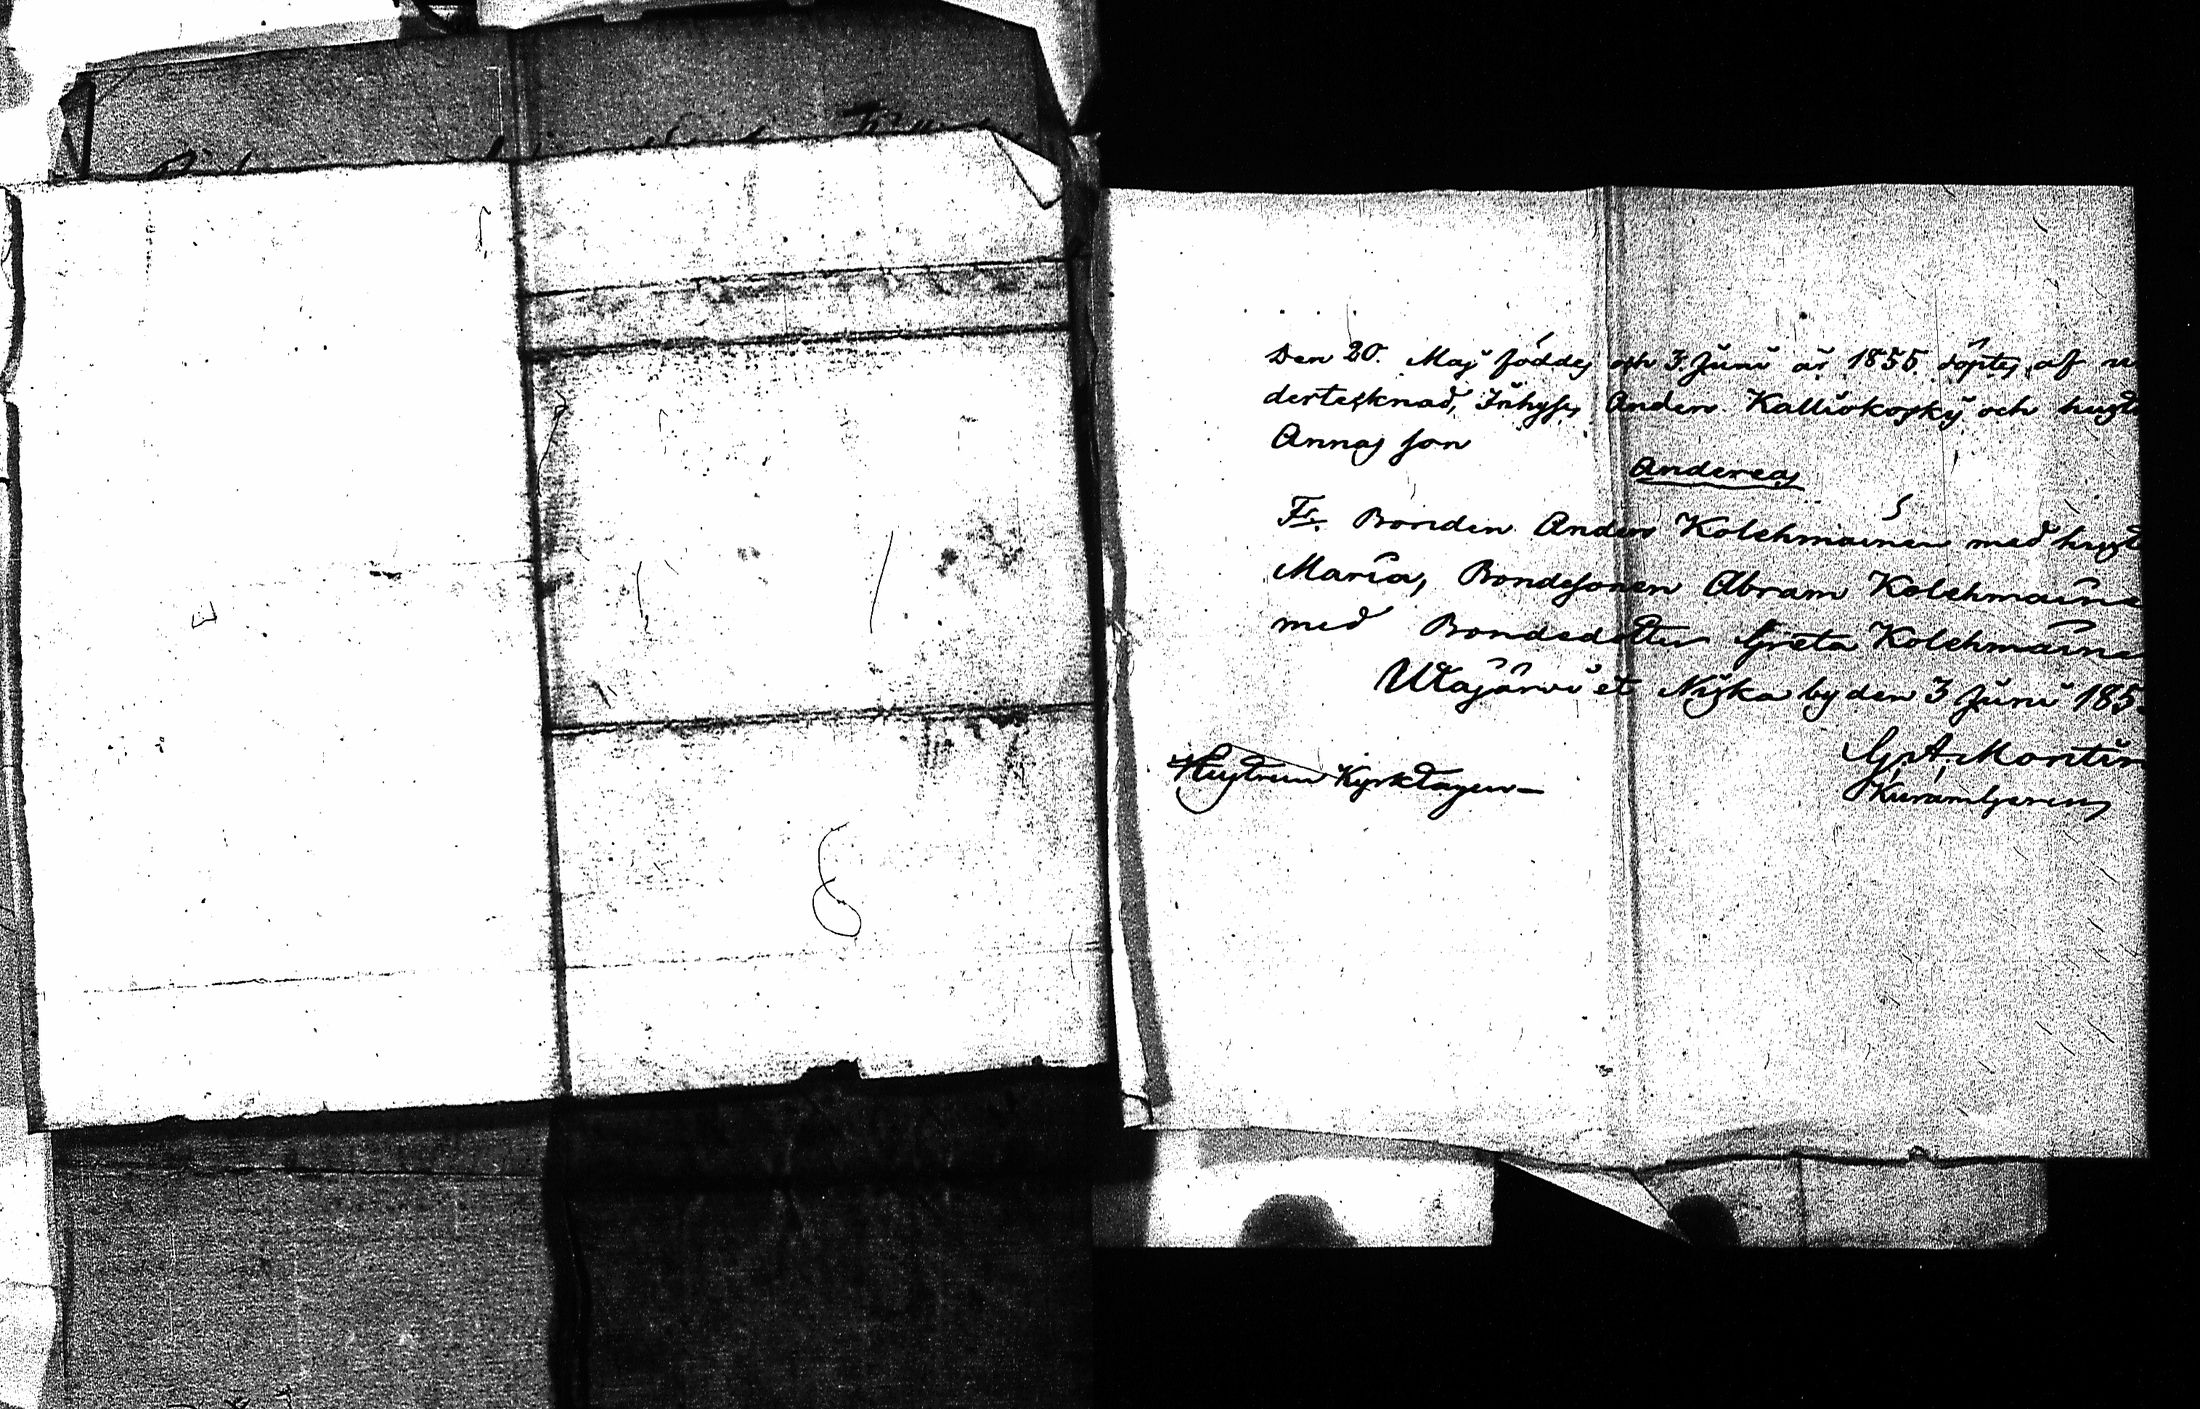 Den 20. Maj föddes och 3. Juni år 1855. döptes, af u
dertecknad, Inhyses Anders Kalliokosky och hust
Annas son
Andereas
Fr. Bonden Anders Kolehmainen med hust
Maria, Bondesonen Abram Kolehmaine
med Bondedotter Greta Kolehmaine
Utajärvi et Niska by den 3 Juni 185
G. A. Montin
Kyrktagen